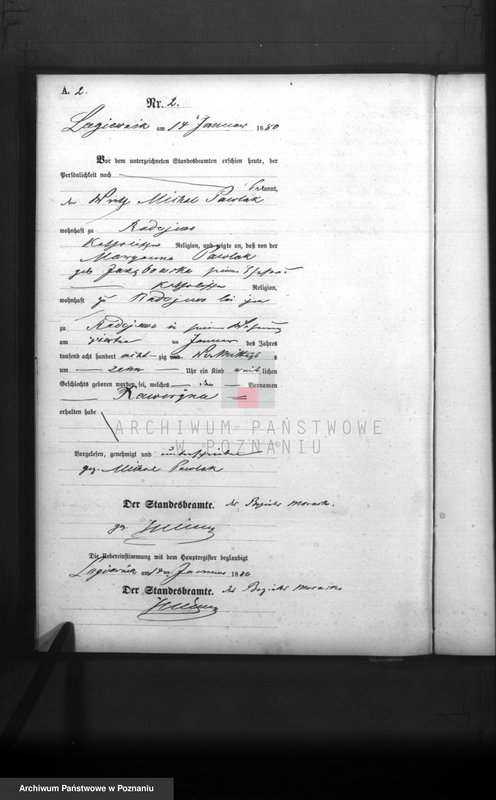 A. 2.
Nr. 2.
am 14 Januar 1880
Vor dem unterzeichneten Standesbeamten erschien heute, der
Persönlichkeit nach
bekannt,
der Wirth Michal Pawlak
wohnhaft zu Radojewo
katholischer Religion, und zeigte an, daß von der
Maryanna Pawlak
geb. seiner Ehefrau
katholischer Religion,
wohnhaft zu Radojewo bei ihm
zu Radojewo in seiner Wohnung
am vierten Januar des Jahres
tausend acht hundert acht zig und Vormittags
um zehn Uhr ein Kind weib lichen
Geschlechts geboren worden sei, welches den Vornamen
erhalten habe
Vorgelesen, genehmigt und unterschrieben
gez. Michal Pawlak
Der Standesbeamte. des Bezirks Morasko.
gez.
Die Uebereinstimmung mit dem Hauptregister beglaubigt
am 14 Januar 1880
Der Standesbeamte. des Bezirks Morasko
ARCHIWUM PAŃSTWOWE
W POZNANIU
Archiwum Państwowe w Poznaniu